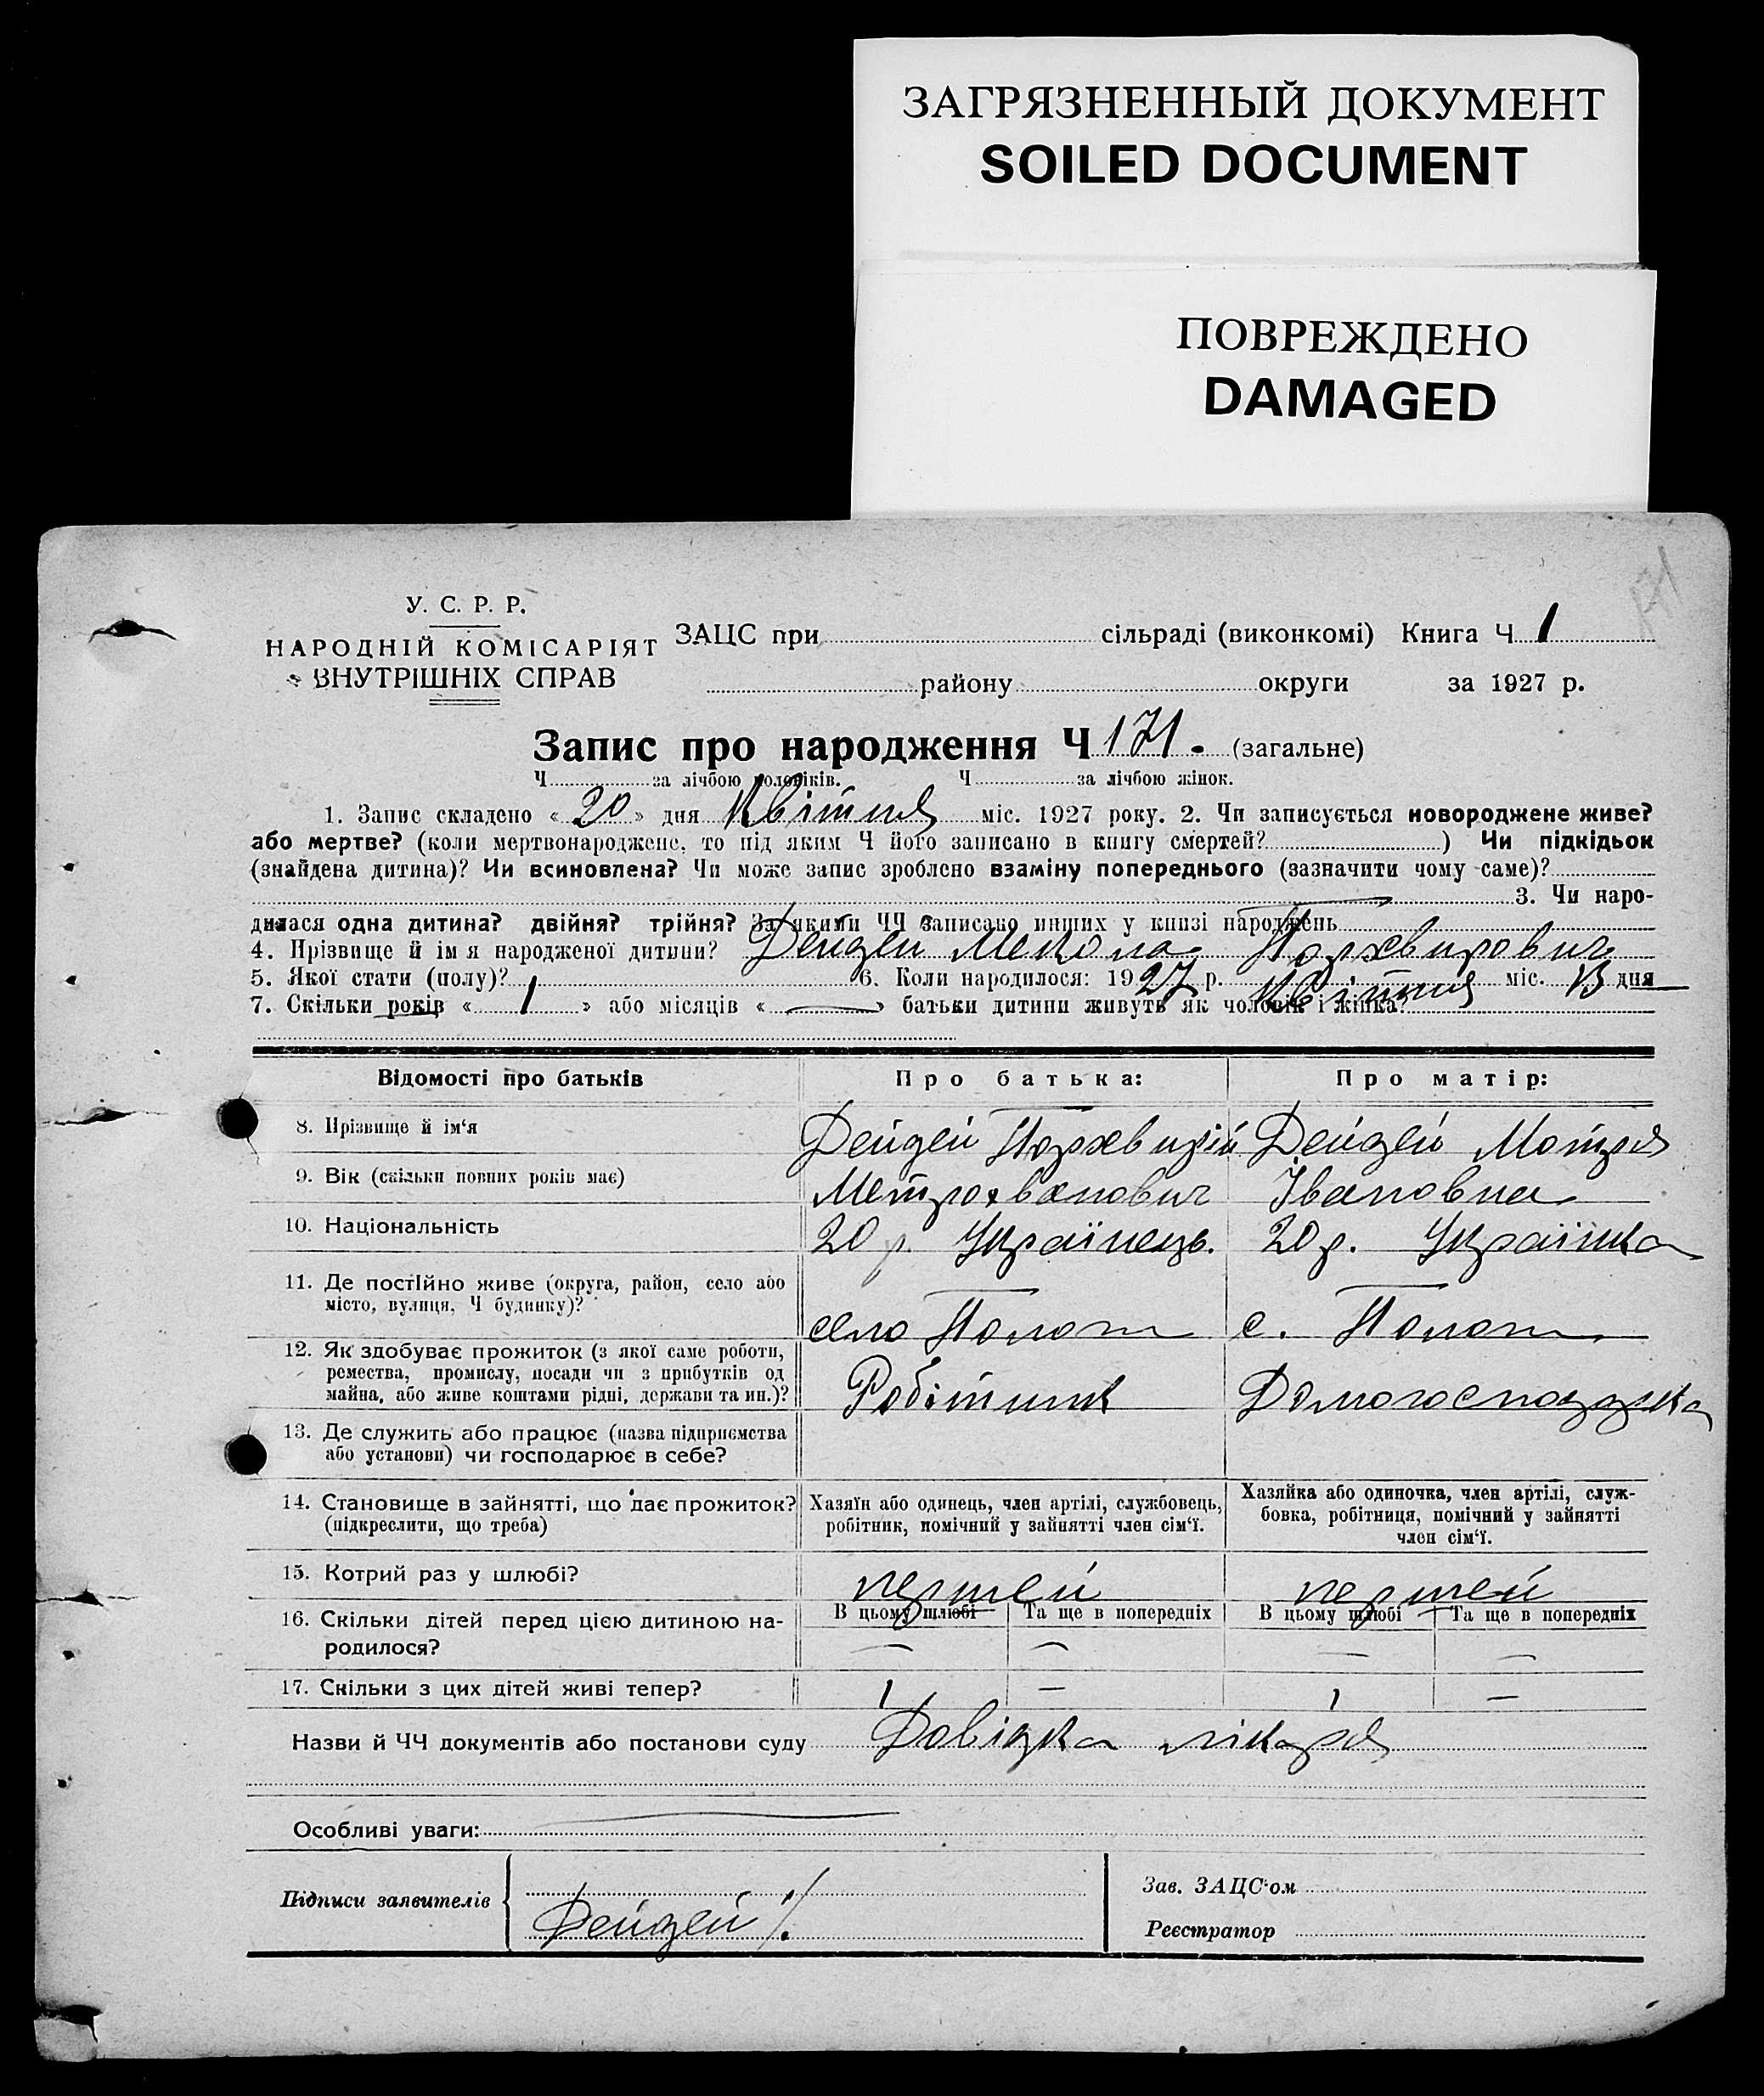 ЗАГРЯЗНЕННЫЙ ДОКУМЕНТ
SOILED DOCUMENT
ПОВРЕЖДЕНО
DAMAGED
171
У. С. Р. Р.
НАРОДНІЙ КОМІСАРІЯТ
ВНУТРІШНІХ СПРАВ
ЗАЦС при сільраді (виконкомі) Книга Ч 1
району округи за 1927 р.
Запис про народження Ч 171. (загальне)
Ч за лічбою чоловіків. Ч за лічбою жінок.
1. Запис складено « 20 » дня Квітня міс. 1927 року. 2. Чи записується новороджене живе?
або мертве? (коли мертвонароджене, то під яким Ч його записано в книгу смертей? ) Чи підкідьок
(знайдена дитина)? Чи всиновлена? Чи може запис зроблено взаміну попереднього (зазначити чому саме)?
3. Чи наро-
дилася одна дитина? двійня? трійня? За якими ЧЧ записано инших у книзі народжень
4. Прізвище й ім я народженої дитини? Дейдей Микола Порхвирович
5. Якої стати (полу)? 6. Коли народилося: 1927 р. Квітня міс. 13 дня
7. Скільки років « 1 » або місяців « — » батьки дитини живуть як чоловік і жінка?
Відомості про батьків Про батька: Про матір:
8. Прізвище й ім‘я Дейдей Порхвирій Дейдей Мотря
9. Вік (скільки повних років має) Метрохванович Івановна
10. Національність 20 р. Українець. 20 р. Українка
11. Де постійно живе (округа, район, село або
місто, вулиця, Ч будинку)? село Пологи с. Пологи
12. Як здобуває прожиток (з якої саме роботи,
ремества, промислу, посади чи з прибутків од
майна, або живе коштами рідні, держави та ин.)? Робітник Домогосподарка
13. Де служить або працює (назва підприємства
або установи) чи господарює в себе?
14. Становище в зайнятті, що дає прожиток?
(підкреслити, що треба)
Хазяїн або одинець, член артілі, службовець,
робітник, помічний у зайнятті член сім‘ї.
Хазяйка або одиночка, член артілі, служ-
бовка, робітниця, помічний у зайнятті
член сім‘ї.
15. Котрий раз у шлюбі? першей першей
16. Скільки дітей перед цією дитиною на-
родилося?
В цьому шлюбі Та ще в попередніх В цьому шлюбі Та ще в попередніх
— — — —
17. Скільки з цих дітей живі тепер? 1 — 1 —
Назви й ЧЧ документів або постанови суду Довідка лікаря
Особливі уваги:
Підписи заявителів Дейдей
Зав. ЗАЦС‘ом
Реєстратор